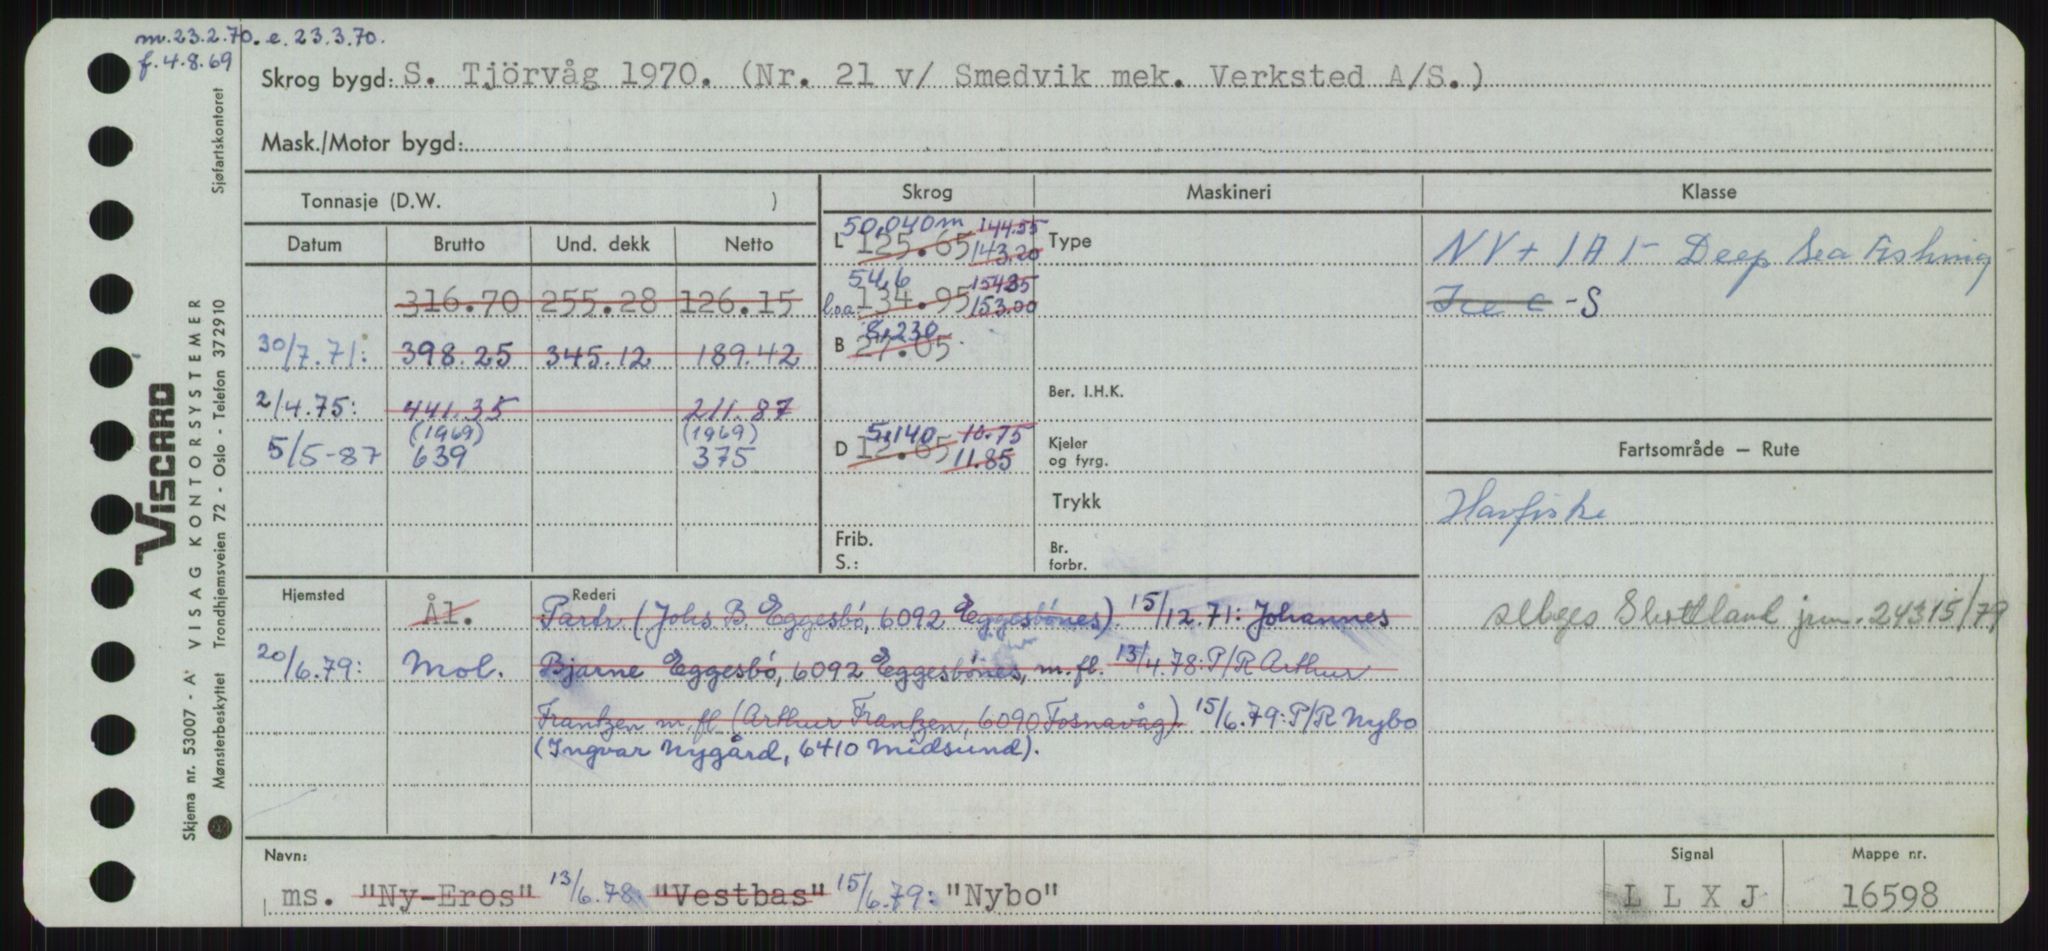 m. 23.2.70. e. 23.3.70.
f. 4.8.69
Skrog bygd: S. Tjörvåg 1970. (Nr. 21 v/ Smedvik mek. Verksted A/S.)
Mask./Motor bygd:
Tonnasje (D.W. )
Datum Brutto Und. dekk Netto
316.70 255.28 126.15
30/7.71: 398.25 345.12 189.42
2/4.75: 441.35 211.87
(1969) (1969)
5/5-87 639 375
Skrog
50,040m 144.55
L 125.65 143.20
54,6 154.35
l.o.a. 134.95 153.00
8,230
B 27.05
5,140 10.75
D 12.65 11.85
Frib.
S.:
Maskineri
Type
Ber. I.H.K.
Kjeler
og fyrg.
Trykk
Br.
forbr.
Klasse
NV + 1A1- Deep Sea Fishing
Ice C -S
Fartsområde – Rute
Havfiske
Hjemsted Rederi
Ål. Partr (Johs B Eggesbö, 6092 Eggesbönes). 15/12.71: Johannes
20/6.79: Mol. Bjarne Eggesbö, 6092 Eggesbönes, m.fl. 13/4.78: P/R Arthur
Frantzen m.fl (Arthur Frantzen, 6090 Fosnavåg) 15/6.79: P/R Nybo
(Ingvar Nygård, 6410 Midsund).
selges Skottland jnr. 24315/79
Navn: Signal Mappe nr.
ms. "Ny-Eros" 13/6.78: "Vestbas" 15/6.79: "Nybo" L L X J 16598
VISCARD
Skjema nr. 53007 - A' VISAG KONTORSYSTEMER
Mønsterbeskyttet Trondhjemsveien 72 - Oslo - Telefon 372910 Sjøfartskontoret